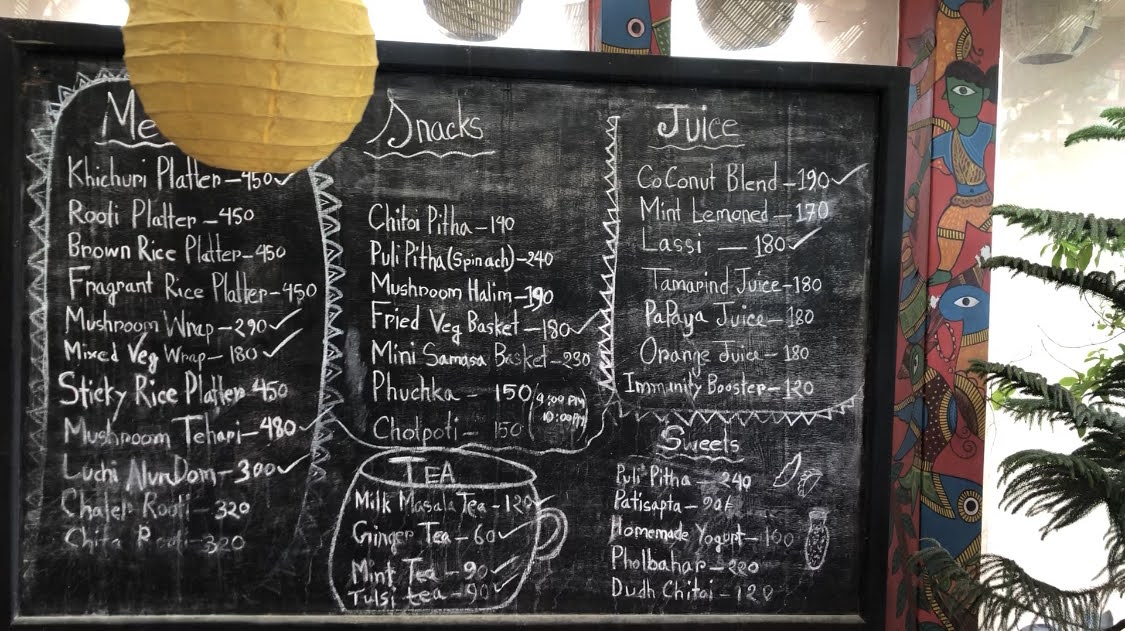 Me
Khichuri Platter-450✓
Rooti Platter-450
Brown Rice Platter-450
Fragrant Rice Platter-450
Mushroom Wrap-290✓
Mixed Veg Wrap-180✓
Sticky Rice Platter-450
Mushroom Tehari-480✓
Luchi AlurDom-300✓
Rooti-320
Rooti-320
Snacks
Chitoi Pitha-140
Puli Pitha(Spinach)-240
Mushroom Halim-190
Fried Veg Basket-180✓
Mini Samasa Basket-230
Phuchka-150
Chotpoti-150
(9:00 PM
10:00PM)
TEA
Milk Masala Tea-120✓
Ginger Tea-60✓
Mint Tea-90✓
Tulsi tea-90✓
Juice
CoConut Blend-190✓
Mint Lemoned-170
Lassi-180✓
Tamarind Juice-180
PaPaya Juice-180
Orange Juice-180
Immunity Booster-120
Sweets
Puli Pitha-240
Patisapta-
Homemade Yogurt-160
Pholbahar-220
Dudh Chitoi-120